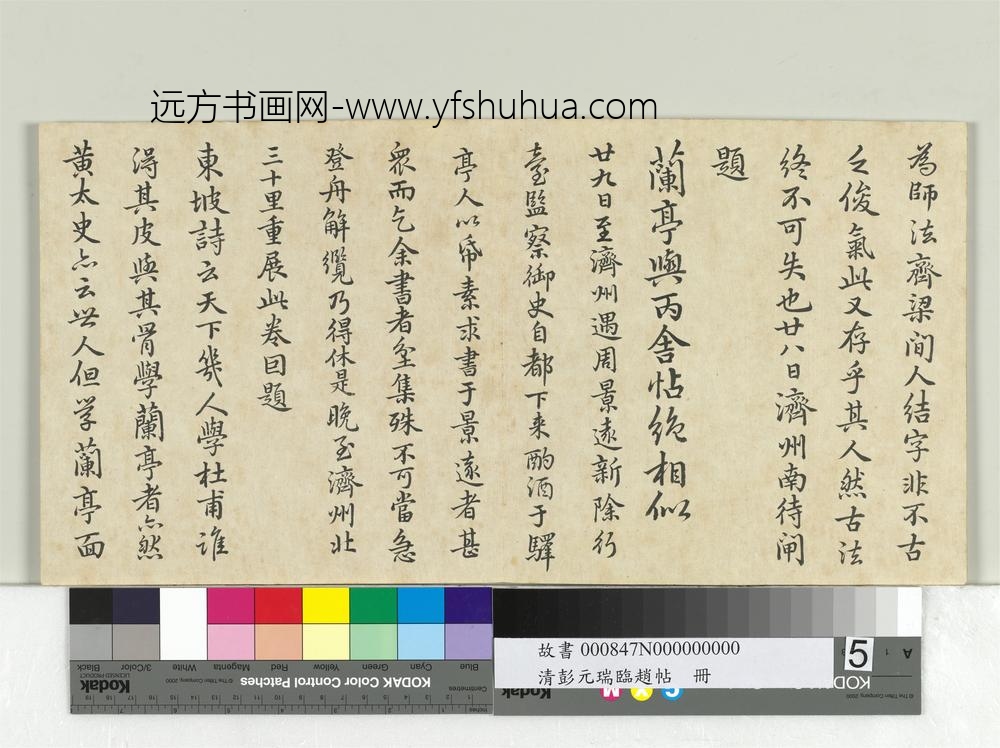 远方书画网-www.yfshuhua.com
為師法齊梁间人结字非不古
之俊氣此又存乎其人然古法
终不可失也廿八日濟州南待闸
題
蘭亭與丙舍帖绝相似
廿九日至濟州遇周景遠新除行
臺監察御史自都下来酌酒于驛
亭人以帋素求書于景遠者甚
衆而乞余書者坌集殊不可當急
登舟解纜乃得休是晚至濟州北
三十里重展此卷囙題
東坡詩云天下幾人學杜甫谁
得其皮與其骨學蘭亭者亦然
黄太史亦云世人但学蘭亭面
Blue
Cyan
Green
Yellow
Red
Magenta
White
3/Color
Black
KODAK Color Control Patches
Kodak
LICENSED PRODUCT
© The Tiffen Company, 2000
Centimetres
Inches
故書 000847N000000000
清彭元瑞臨趙帖 冊
5
A
M
Y
C